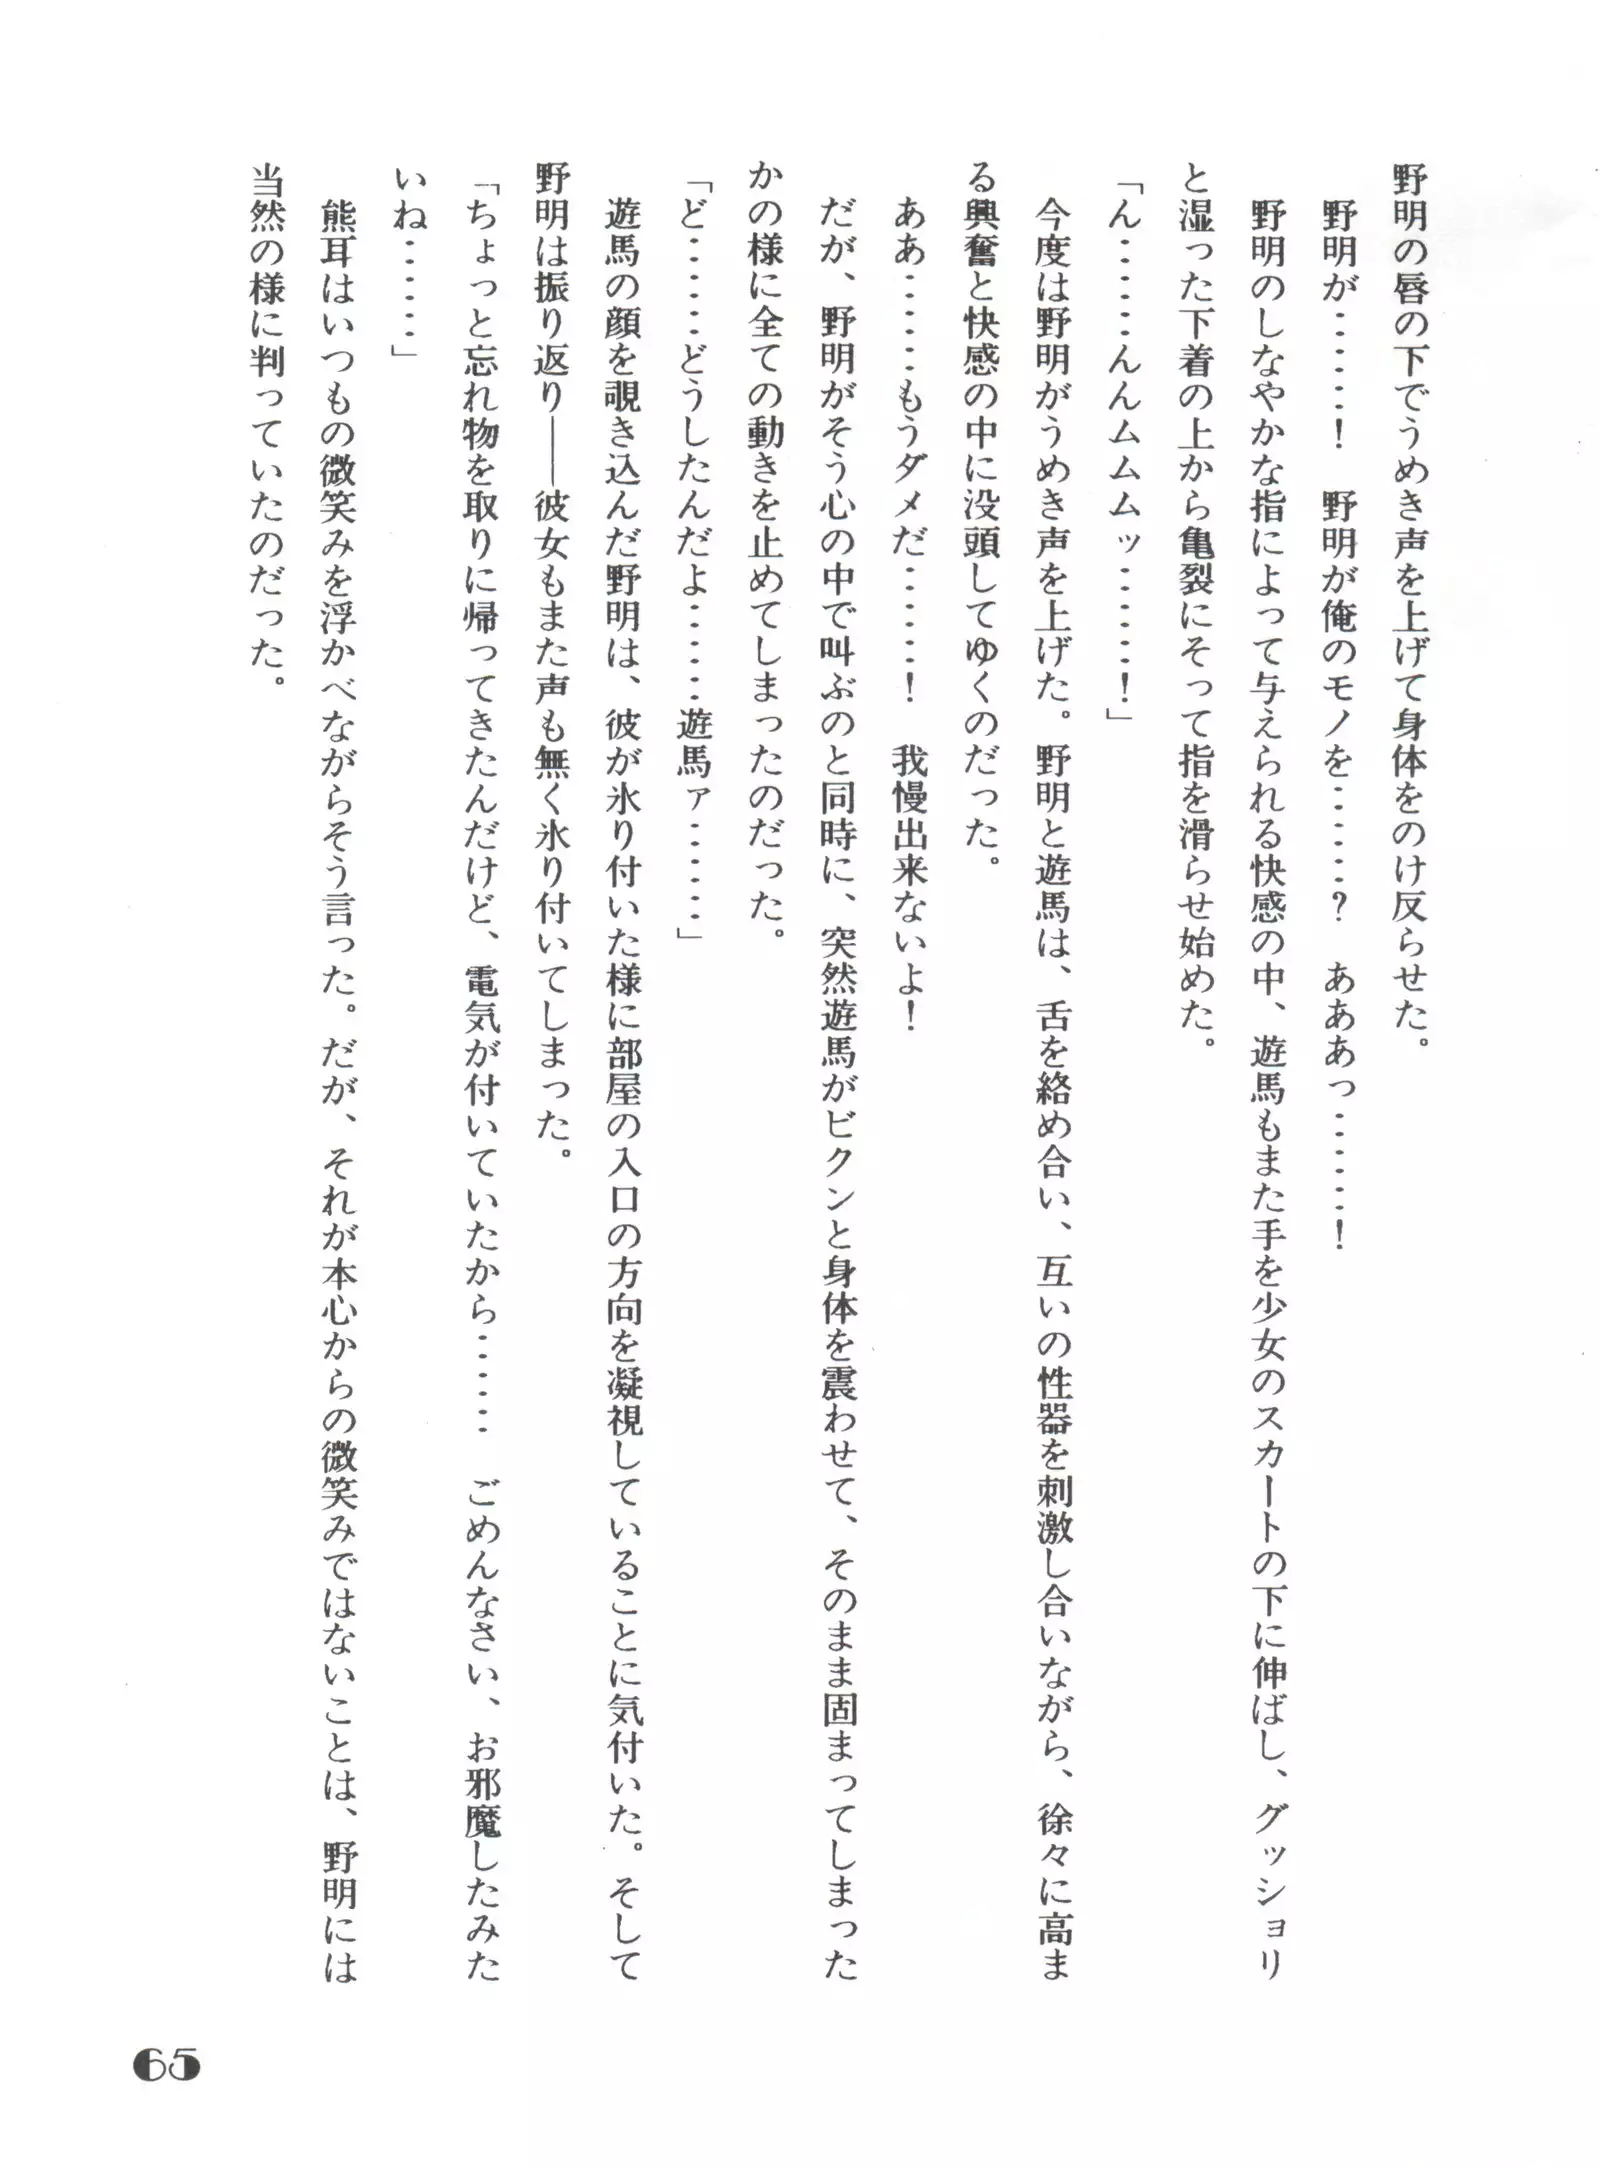 野明の唇の下でうめき声を上げて身体をのけ反らせた。
　野明が……！　野明が俺のモノを……？　あああっ……！
　野明のしなやかな指によって与えられる快感の中、遊馬もまた手を少女のスカートの下に伸ばし、グッショリ
と湿った下着の上から亀裂にそって指を滑らせ始めた。
「ん……んんムムムッ……！」
　今度は野明がうめき声を上げた。野明と遊馬は、舌を絡め合い、互いの性器を刺激し合いながら、徐々に高ま
る興奮と快感の中に没頭してゆくのだった。
　ああ……もうダメだ……！　我慢出来ないよ！
　だが、野明がそう心の中で叫ぶのと同時に、突然遊馬がビクンと身体を震わせて、そのまま固まってしまった
かの様に全ての動きを止めてしまったのだった。
「ど……どうしたんだよ……遊馬ァ……」
　遊馬の顔を覗き込んだ野明は、彼が氷り付いた様に部屋の入口の方向を凝視していることに気付いた。そして
野明は振り返り――彼女もまた声も無く氷り付いてしまった。
「ちょっと忘れ物を取りに帰ってきたんだけど、電気が付いていたから……　ごめんなさい、お邪魔したみた
いね……」
　熊耳はいつもの微笑みを浮かべながらそう言った。だが、それが本心からの微笑みではないことは、野明には
当然の様に判っていたのだった。
65